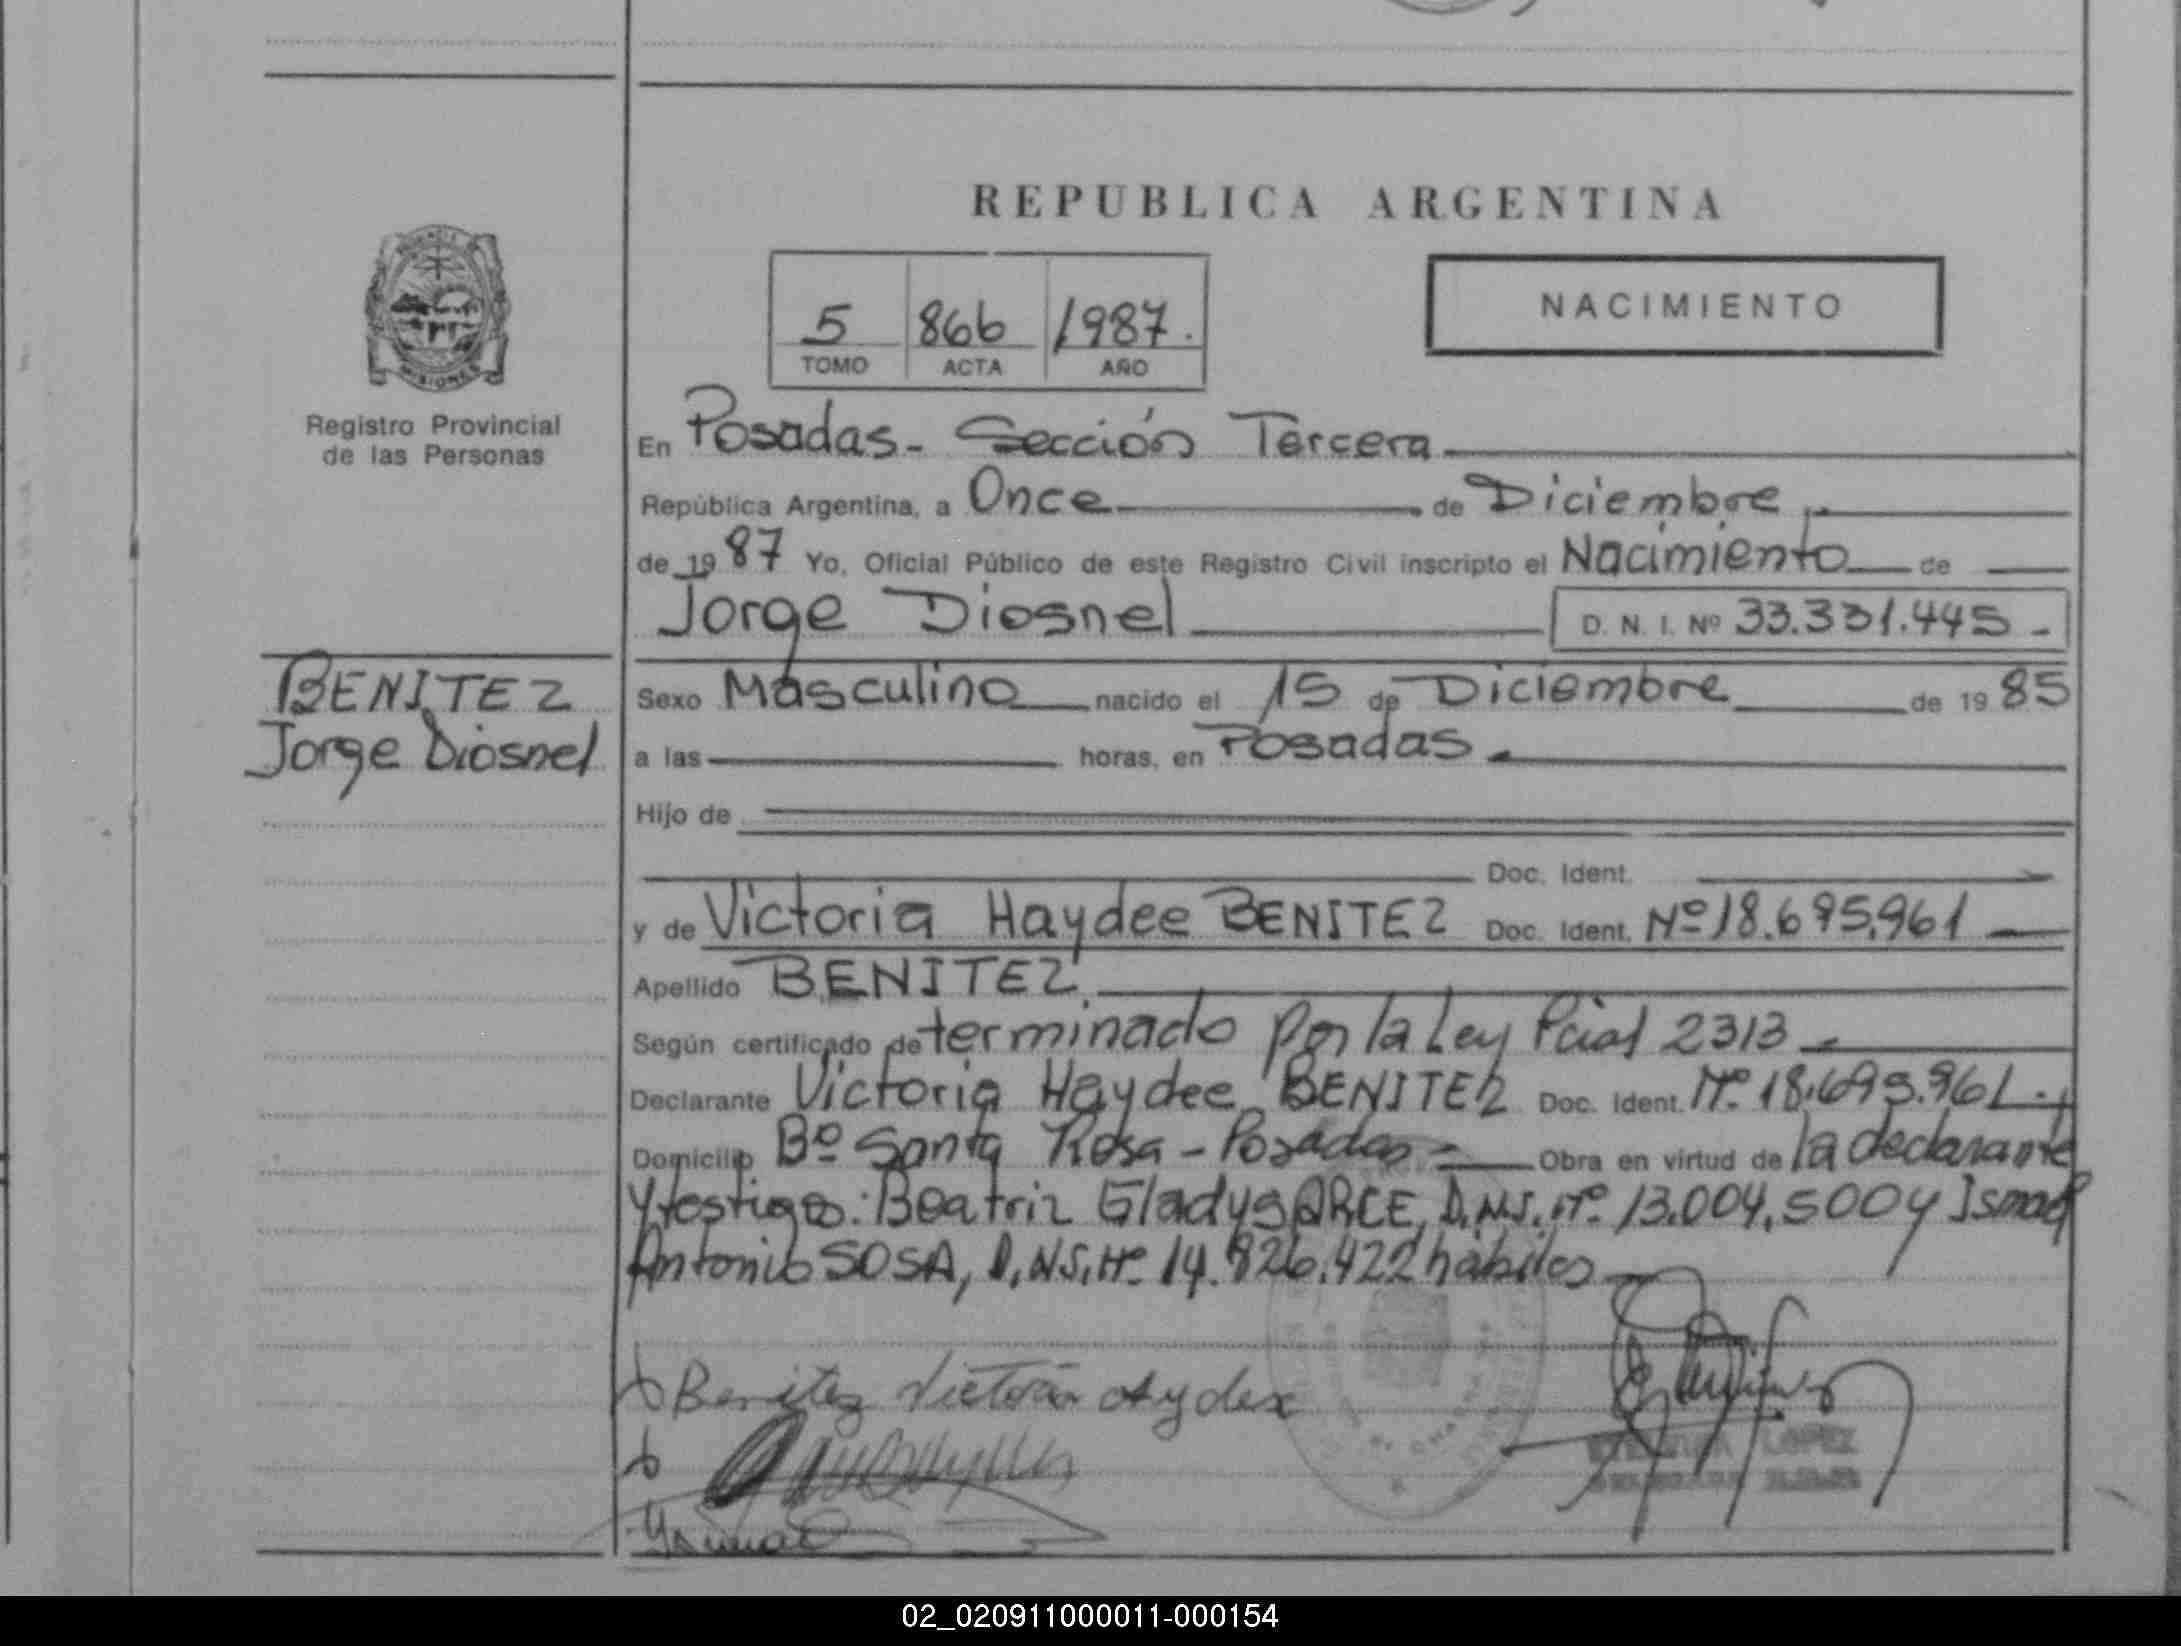 REPUBLICA ARGENTINA
PROVINCIA
MISIONES
Registro Provincial
de las Personas
5 866 1987.
TOMO ACTA AÑO
NACIMIENTO
En Posadas - Sección Tercera
República Argentina, a Once de Diciembre
de 1987 Yo, Oficial Público de este Registro Civil inscripto el Nacimiento de
Jorge Diosnel D. N. I. Nº 33.331.445 -
BENITEZ
Jorge Diosnel
Sexo Masculino nacido el 15 de Diciembre de 1985
a las horas, en Posadas.
Hijo de
Doc. Ident.
y de Victoria Haydee BENITEZ Doc. Ident. Nº 18.695.961
Apellido BENITEZ
Según certificado de terminado por la Ley Pcial 2313 -
Declarante Victoria Haydee BENITEZ Doc. Ident. Nº 18.695.961.
Domicilio Bº Santa Rosa - Posadas - Obra en virtud de la declarante
y testigos: Beatriz Gladys ARCE, D.N.I. Nº 13.004.500 y Ismael
Antonio SOSA, D.N.I. Nº 14.926.422 hábiles
Benitez Victoria Aydex
LOPEZ
02_020911000011-000154